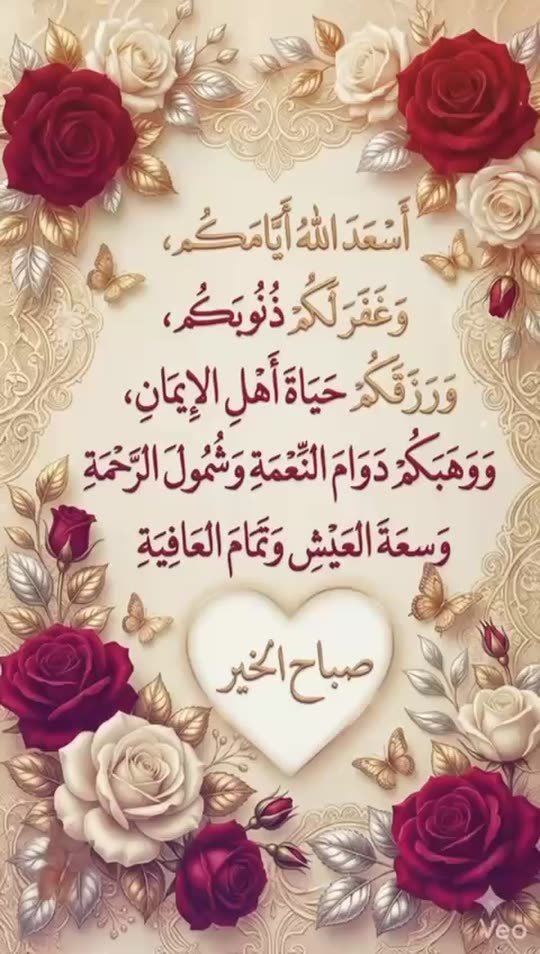 أَسْعَدَ اللهُ أَيَّامَكُم،
وَغَفَرَ لَكُمْ ذُنُوبَكُم،
وَرَزَقَكُمْ حَيَاةَ أَهْلِ الإِيمَانِ،
وَوَهَبَكُمْ دَوَامَ النِّعْمَةِ وَشُمُولَ الرَّحْمَةِ
وَسعَةَ العَيْشِ وَتَمَامَ العَافِيَةِ
صباح الخير
Veo